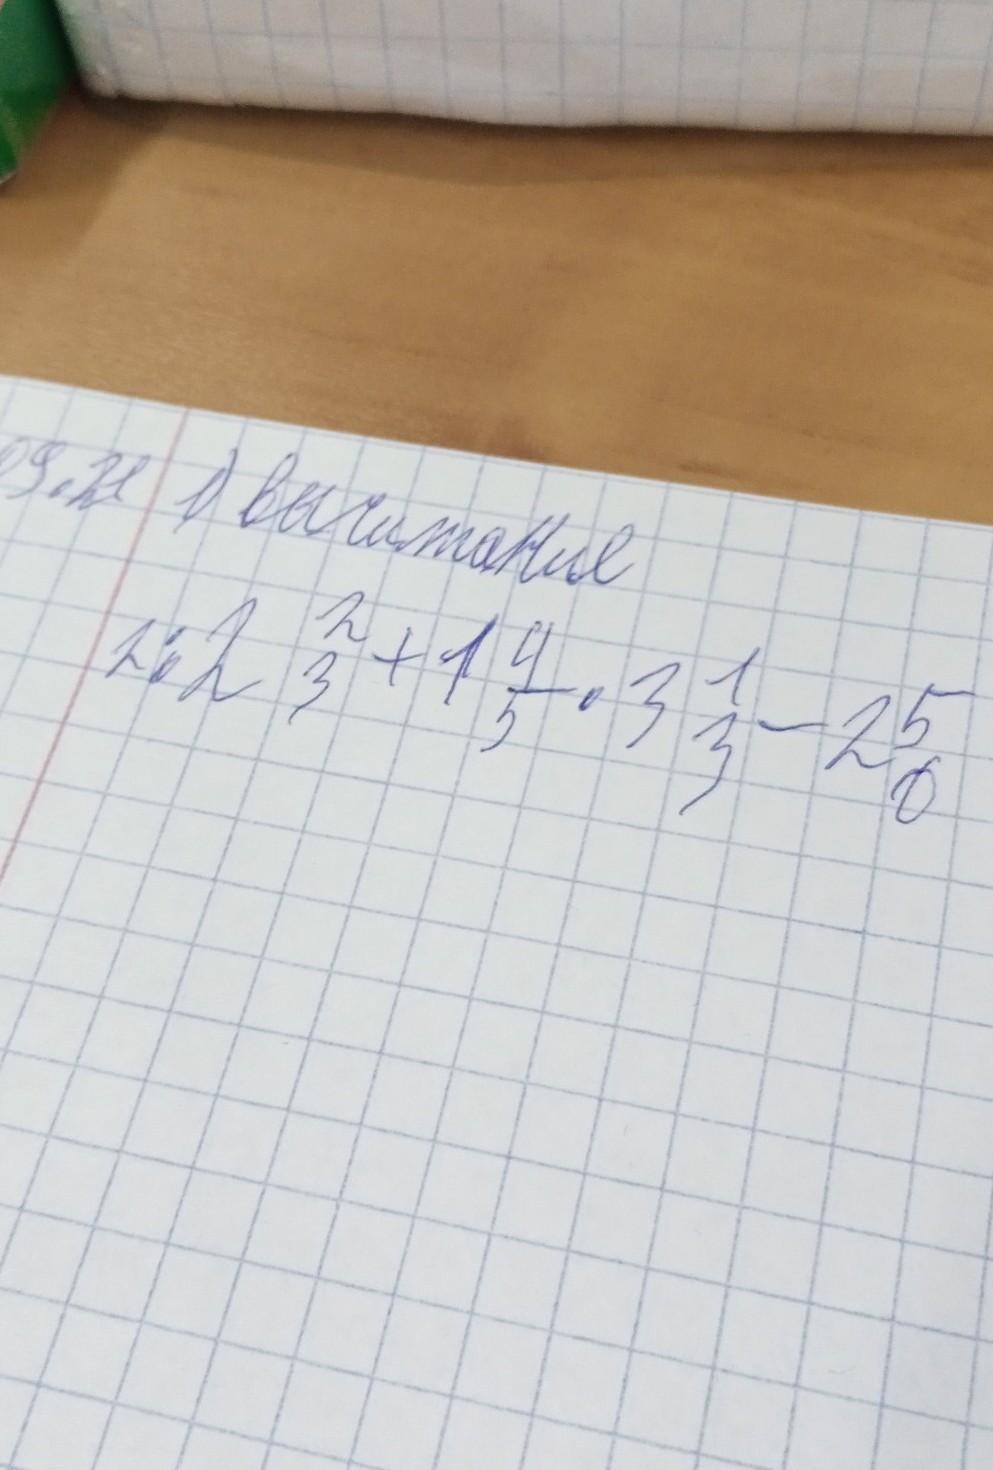 09.21 1) вычитание
2:2 2/3 + 1 4/5 · 3 1/3 - 2 5/6